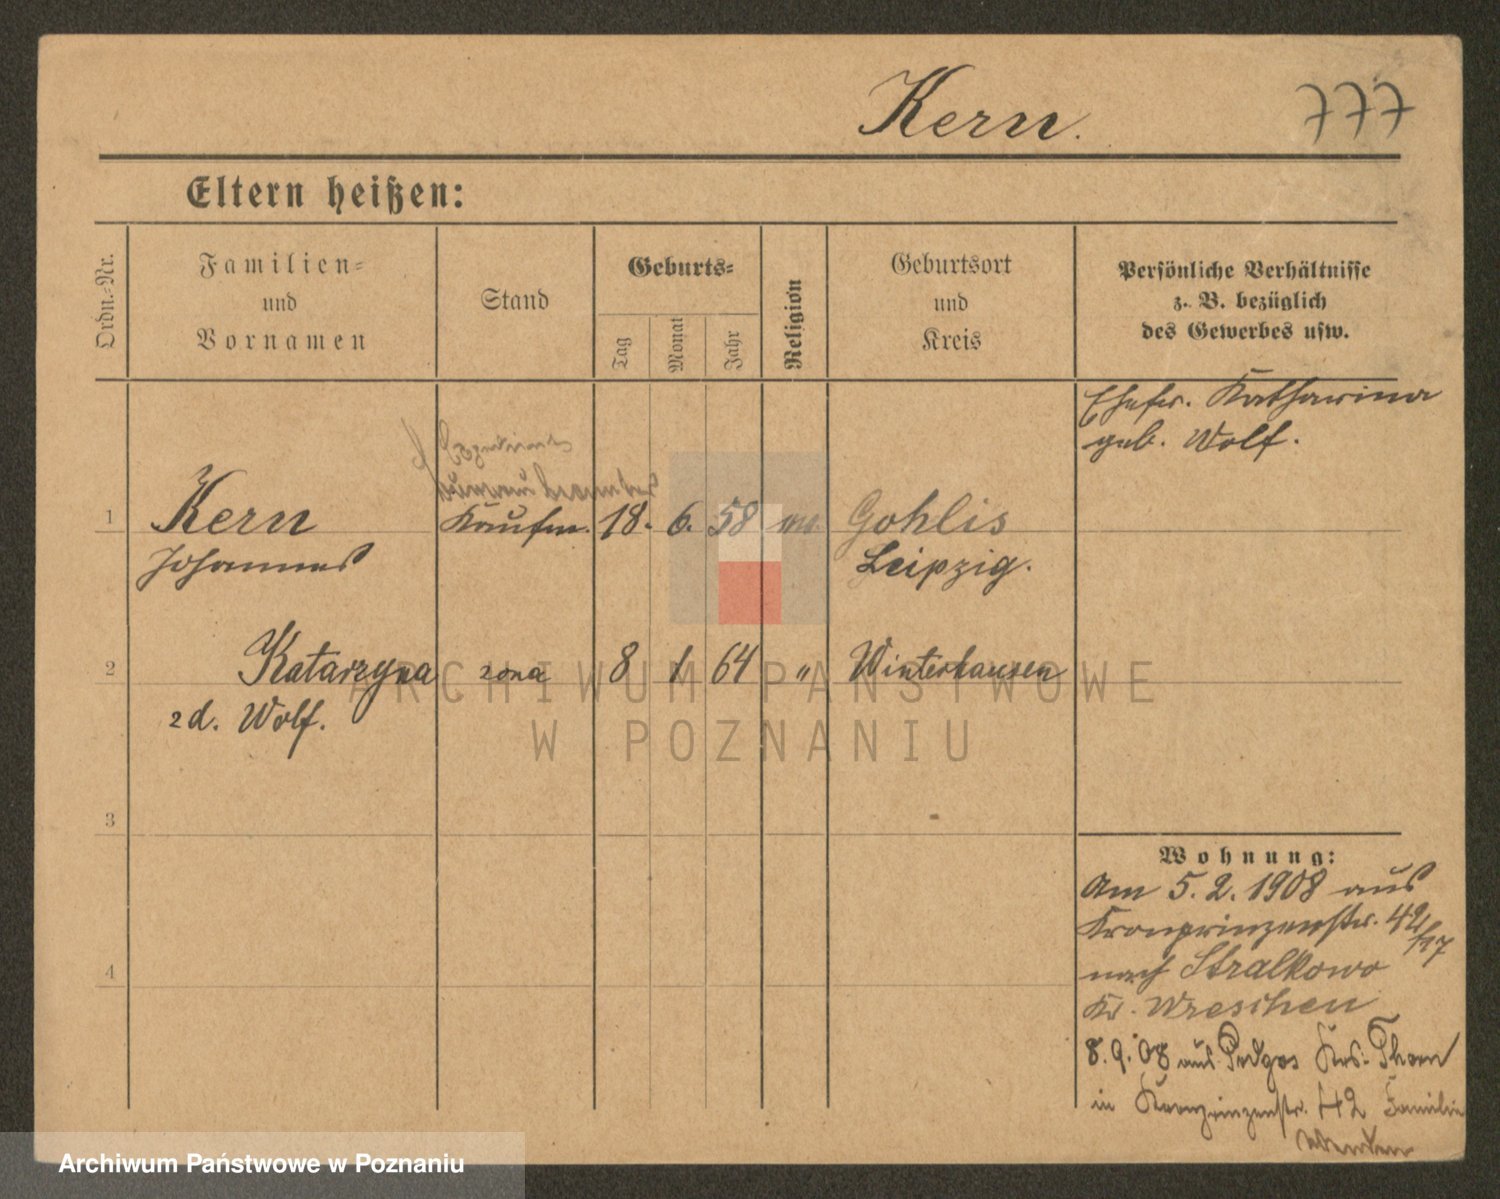 Kern.
777
Eltern heißen:
Ordn.-Nr.
Familien-
und
Vornamen
Stand
Geburts-
Tag
Monat
Jahr
Religion
Geburtsort
und
Kreis
Persönliche Verhältnisse
z. B. bezüglich
des Gewerbes usw.
Ehefr. Katharina
geb. Wolf.
1
Kern
Kaufm.
18.
6.
58
Gohlis
Johannes
Leipzig.
2
Katarzyna
zona
8
1
64
"
Winterhausen
zd. Wolf.
ARCHIWUM PAŃSTWOWE
W POZNANIU
3
Wohnung:
Am 5.2.1908 aus
Kronprinzenstr. 42
nach Stralkowo
Kr. Wreschen
4
8.9.08 aus Podgos Krs. Thorn
in Kronprinzenstr. 42 Familie
Archiwum Państwowe w Poznaniu